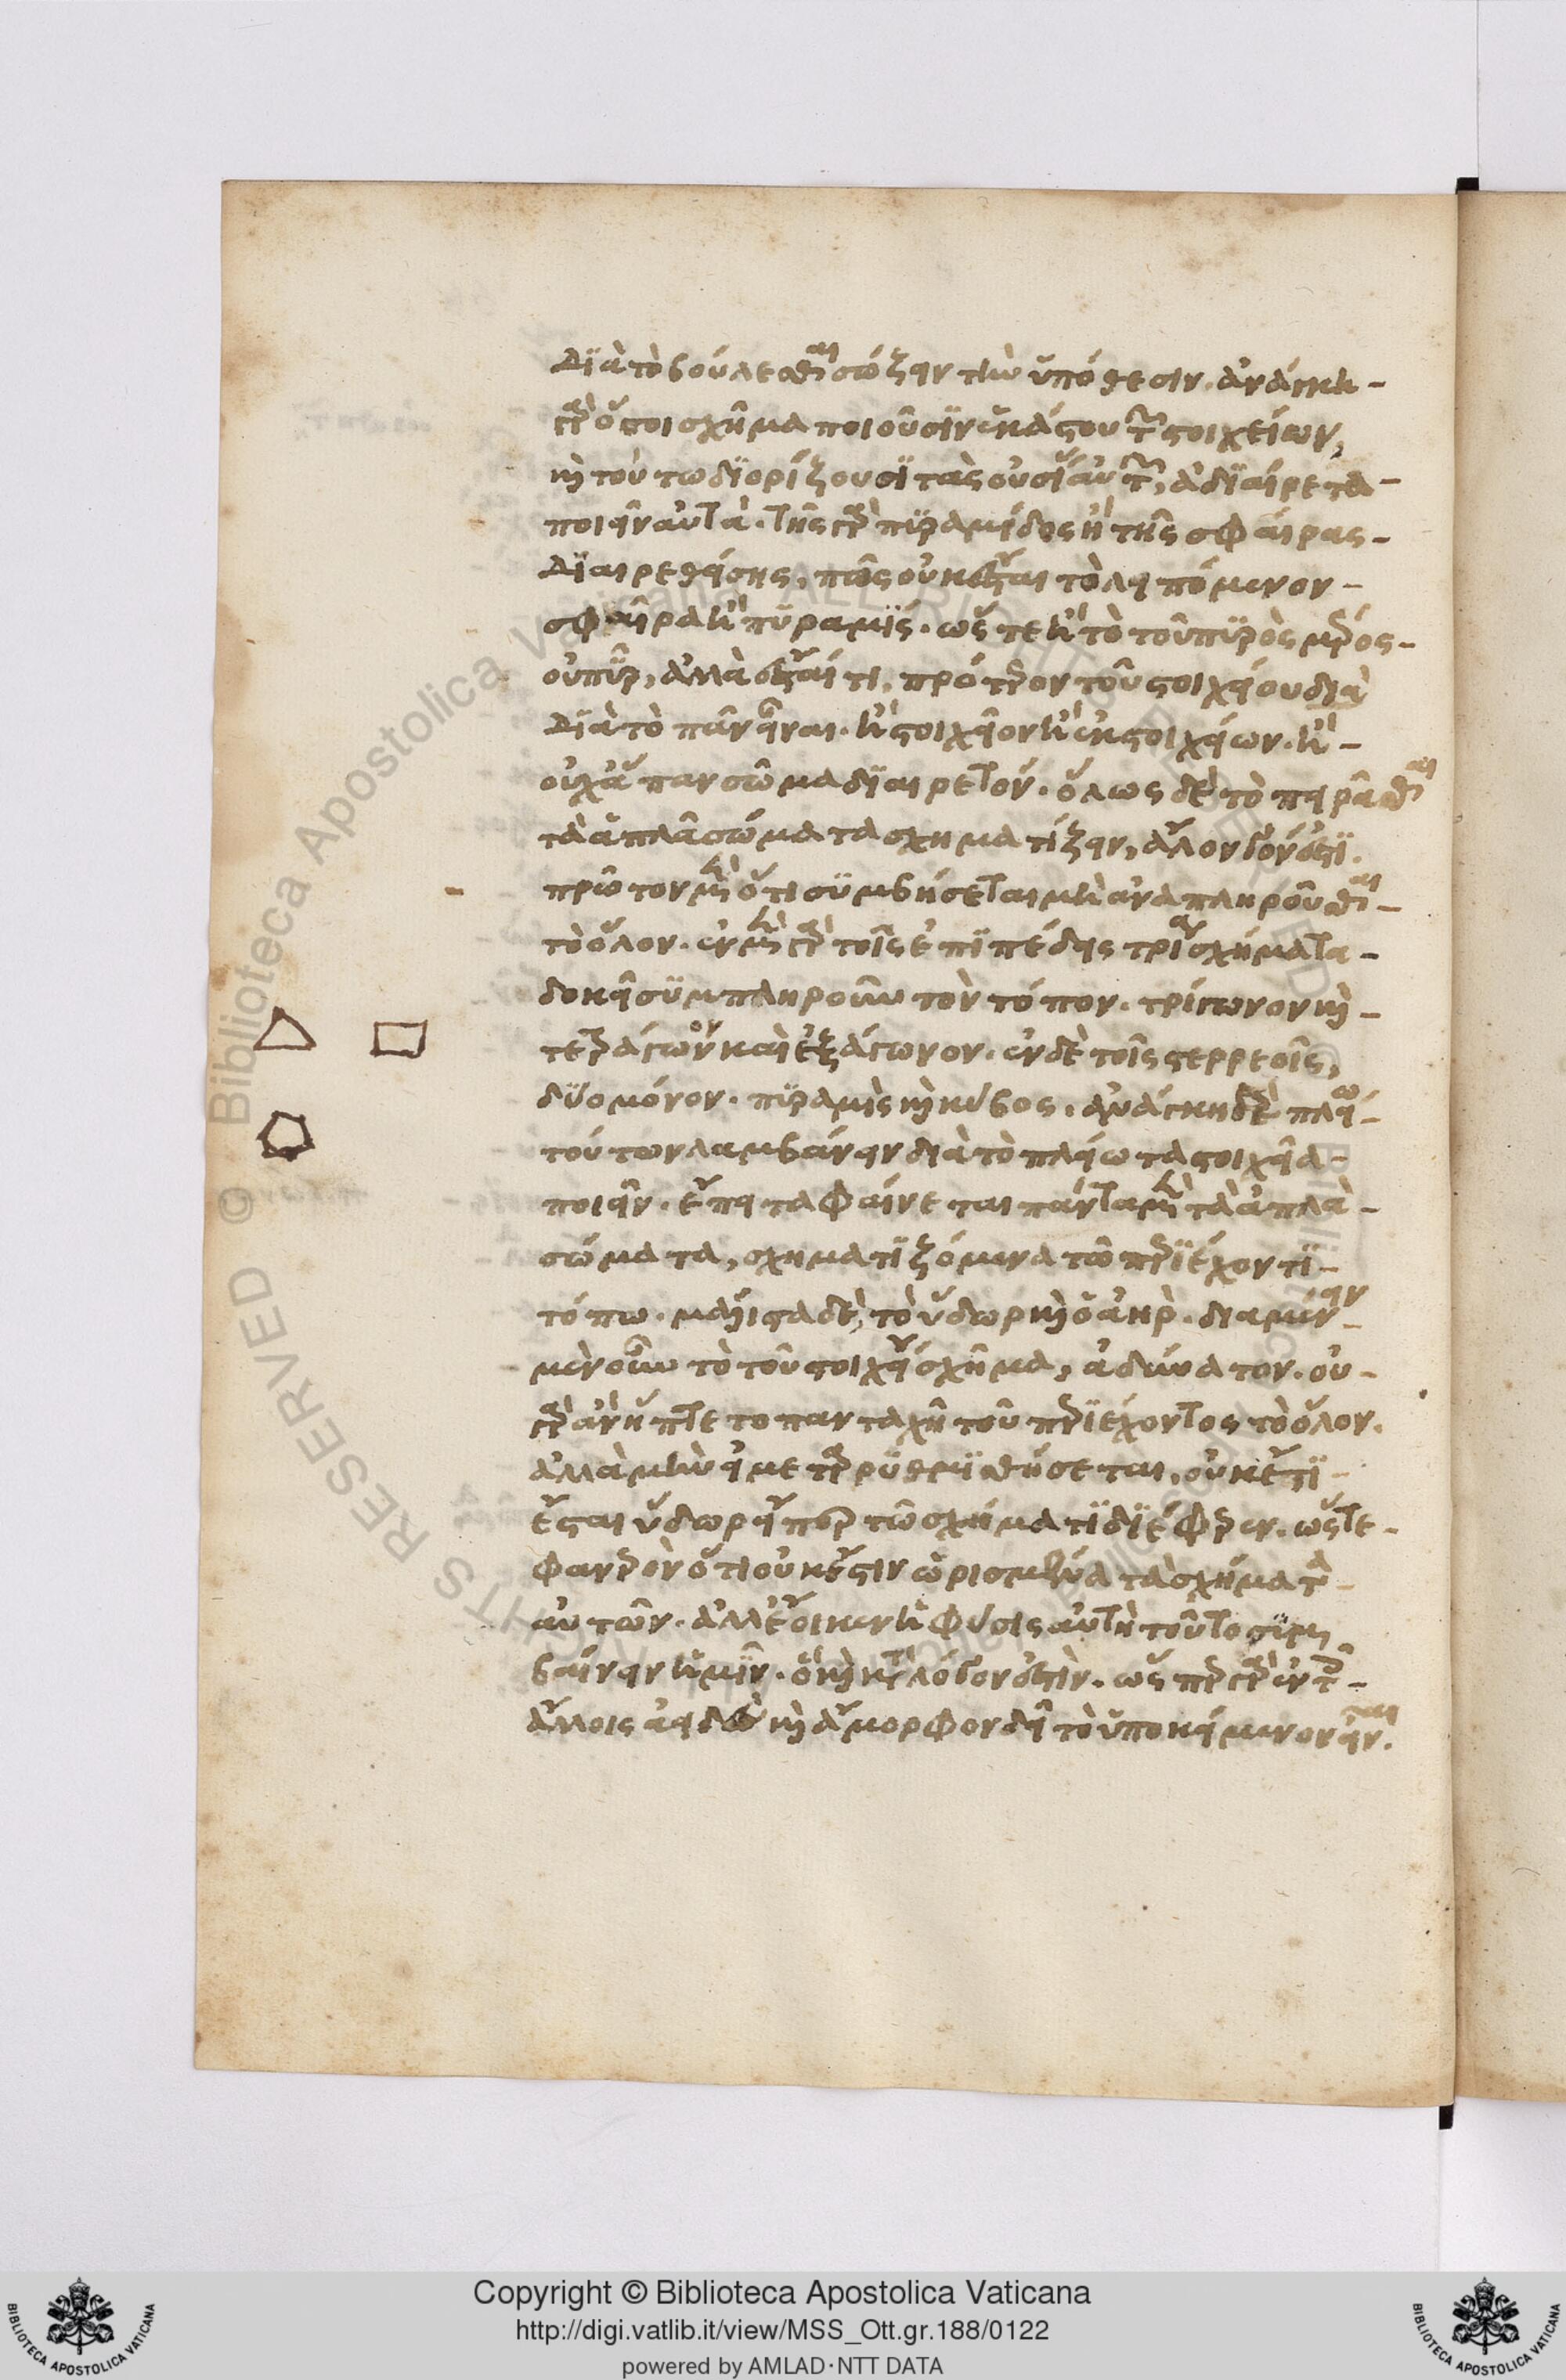 Διὰ τὸ βούλεσθαι σώζειν τὴν ὑπόθεσιν. ἀνάγκη
γὰρ ὅσοι σχῆμα ποιοῦσιν ἑκάστου τῶν στοιχείων,
καὶ τούτω διορίζουσι τὰς οὐσίας αὐτῶν, ἀδιαίρετα
ποιεῖν αὐτά. τῆς γὰρ πυραμίδος ἢ τῆς σφαίρας
Διαιρεθείσης, πῶς οὐκ ἔσται τὸ λειπόμενον
σφαῖρα ἢ πυραμίς. ὥστε ἢ τὸ τοῦ πυρὸς μέρος
οὐ πῦρ, ἀλλὰ ἔσται τι, πρότερον τοῦ στοιχείου διὰ
Διὰ τὸ πᾶν εἶναι. ἢ στοιχεῖον ἢ ἐκ στοιχείων. ἢ
οὐχ ἅπαν σῶμα διαιρετόν. ὅλως δὲ τὸ πειρᾶσθαι
τὰ ἁπλᾶ σώματα σχηματίζειν, ἄλογόν ἐστι.
πρῶτον μὲν ὅτι συμβήσεται μὴ ἀναπληροῦσθαι
τὸ ὅλον. ἐν μὲν γὰρ τοῖς ἐπιπέδοις τρία σχήματα
δοκεῖ συμπληροῦν τὸν τόπον. τρίγωνον καὶ
τετράγωνον καὶ ἑξάγωνον. ἐν δὲ τοῖς στερρεοῖς,
δύο μόνον. πυραμὶς καὶ κύβος. ἀνάγκη δὲ πλείω
τούτων λαμβάνειν διὰ τὸ πλείω τὰ στοιχεῖα
ποιεῖν. ἔπειτα φαίνεται πάντα μὲν τὰ ἁπλὰ
σώματα, σχηματιζόμενα τῶ περιέχοντι
τόπω. μάλιστα δὲ, τὸ ὕδωρ καὶ ὁ ἀὴρ. διαμένειν
μὲν οὖν τὸ τοῦ στοιχείου σχῆμα, ἀδύνατον. οὐ
γὰρ ἂν ἥπτετο πανταχῆ τοῦ περιέχοντος τὸ ὅλον.
ἀλλὰ μὴν εἰ μεταρρυθμισθήσεται, οὐκέτι
ἔσται ὕδωρ εἴπερ τῶ σχήματι διέφερεν. ὥστε
φανερὸν ὅτι οὐκ ἔστιν ὡρισμένα τὰ σχήματα
αὐτῶν. ἀλλ' ἔοικεν ἡ φύσις αὐτὴ τοῦτο σημ
βαίνειν ἡμῖν. ὃ καὶ κατὰ λόγον ἐστὶν. ὥσπερ γὰρ ἐν τοῖς
ἄλλοις ἀειδὲς καὶ ἄμορφον δεῖ τὸ ὑποκείμενον εἶναι.
Copyright © Biblioteca Apostolica Vaticana
http://digi.vatlib.it/view/MSS_Ott.gr.188/0122
powered by AMLAD·NTT DATA